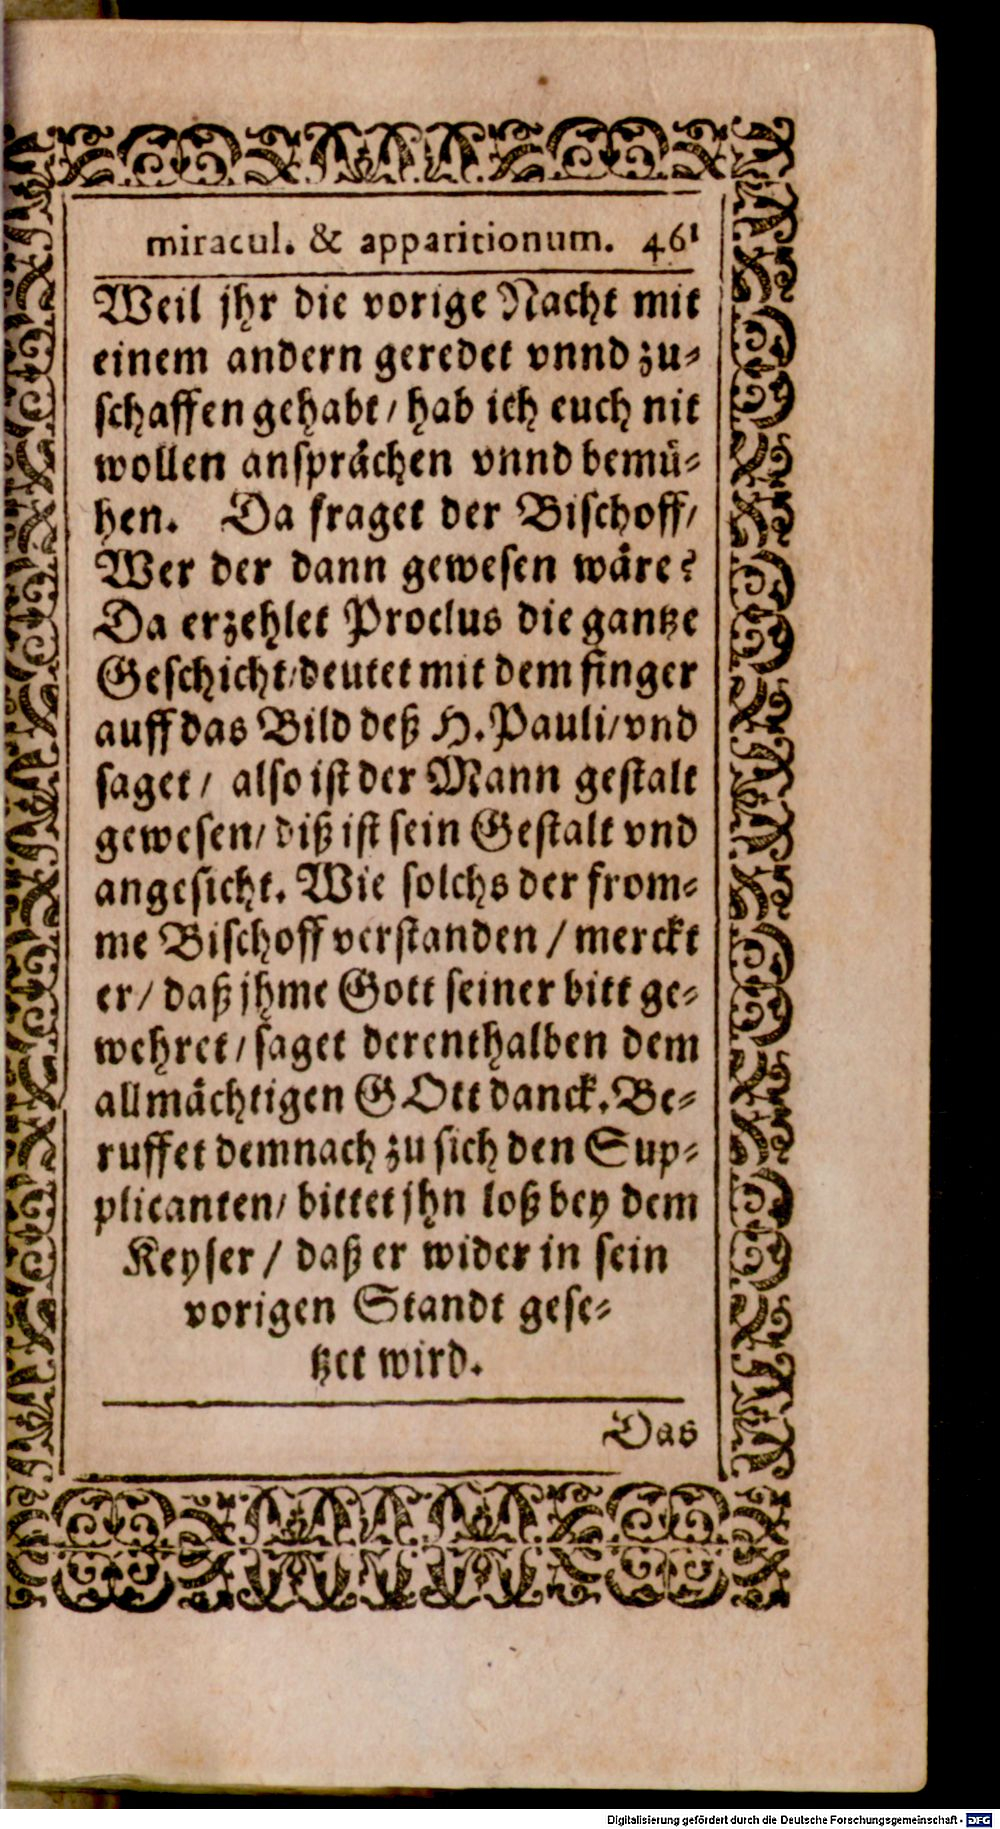 miracul. & apparitionum. 461
Weil jhr die vorige Nacht mit
einem andern geredet vnnd zu-
schaffen gehabt / hab ich euch nit
wollen ansprächen vnnd bemü-
hen. Da fraget der Bischoff /
Wer der dann gewesen wäre?
Da erzehlet Proclus die gantze
Geschicht / deutet mit dem finger
auff das Bild deß H. Pauli / vnd
saget / also ist der Mann gestalt
gewesen / diß ist sein Gestalt vnd
angesicht. Wie solchs der from-
me Bischoff verstanden / merckt
er / daß jhme Gott seiner bitt ge-
wehret / saget derenthalben dem
allmächtigen GOtt danck. Be-
ruffet demnach zu sich den Sup-
plicanten / bittet jhn loß bey dem
Keyser / daß er wider in sein
vorigen Standt gese-
tzet wird.
Das
Digitalisierung gefördert durch die Deutsche Forschungsgemeinschaft - DFG